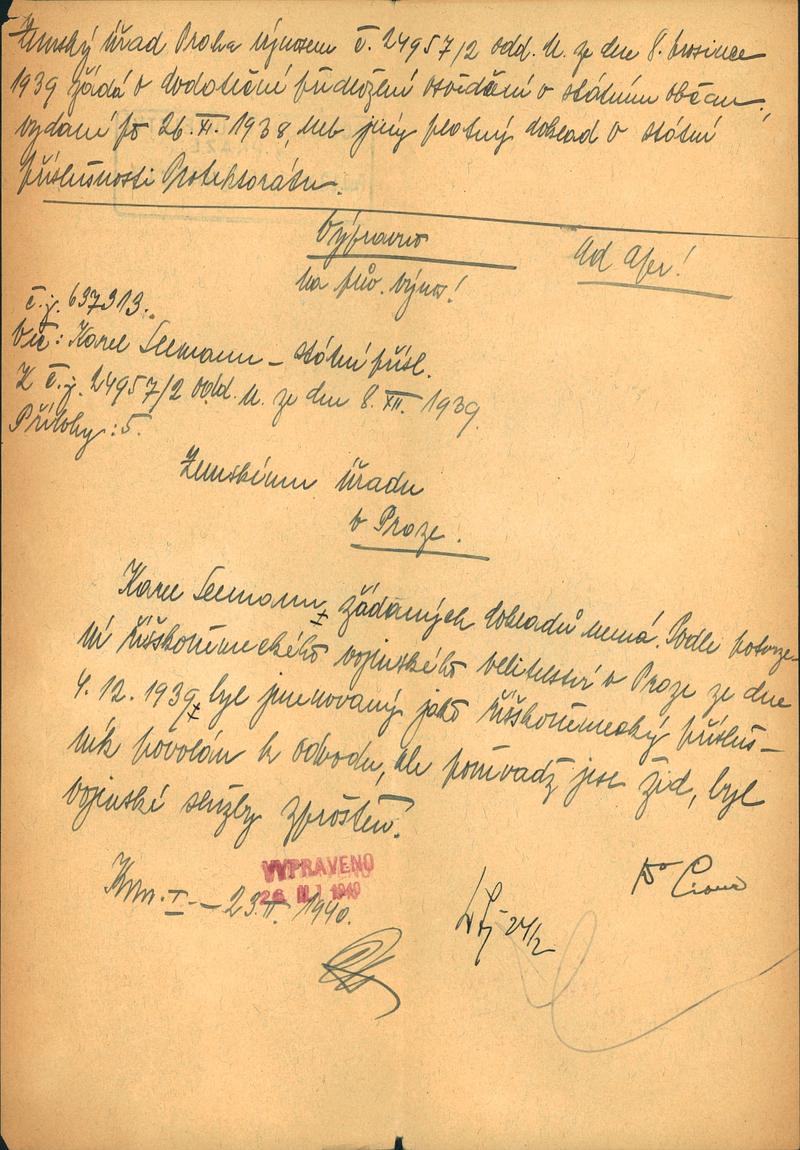 Zemský úřad Praha výnosem č. 24957/2 odd. U. ze dne 8. prosince
1939 žádá o dodatečné předložení osvědčení o státním občan.,
vydaní po 26. XI. 1938, neb jiný platný doklad o státní
příslušnosti Protektorátu.
Výpravno
na pův. výnos!
Ad
č.j. 637313.
Věc: Karel Seemann – státní přísl.
K č.j. 24957/2 odd. U. ze dne 8. XII. 1939.
Přílohy: 5.
Zemskému úřadu
v Praze.
Karel Seemann, žádaných dokladů nemá. Podle potvrze-
ní říškoněmeckého vojinského velitelství v Praze ze dne
4. 12. 1939 byl jmenovaný jako říškoněmecký přísluš-
ník povolán k odvodu, ale poněvadž jest žid, byl
vojinské služby zproštěn.
VYPRAVENO
26 II 1940
23. II. 1940.
Dr
24/2